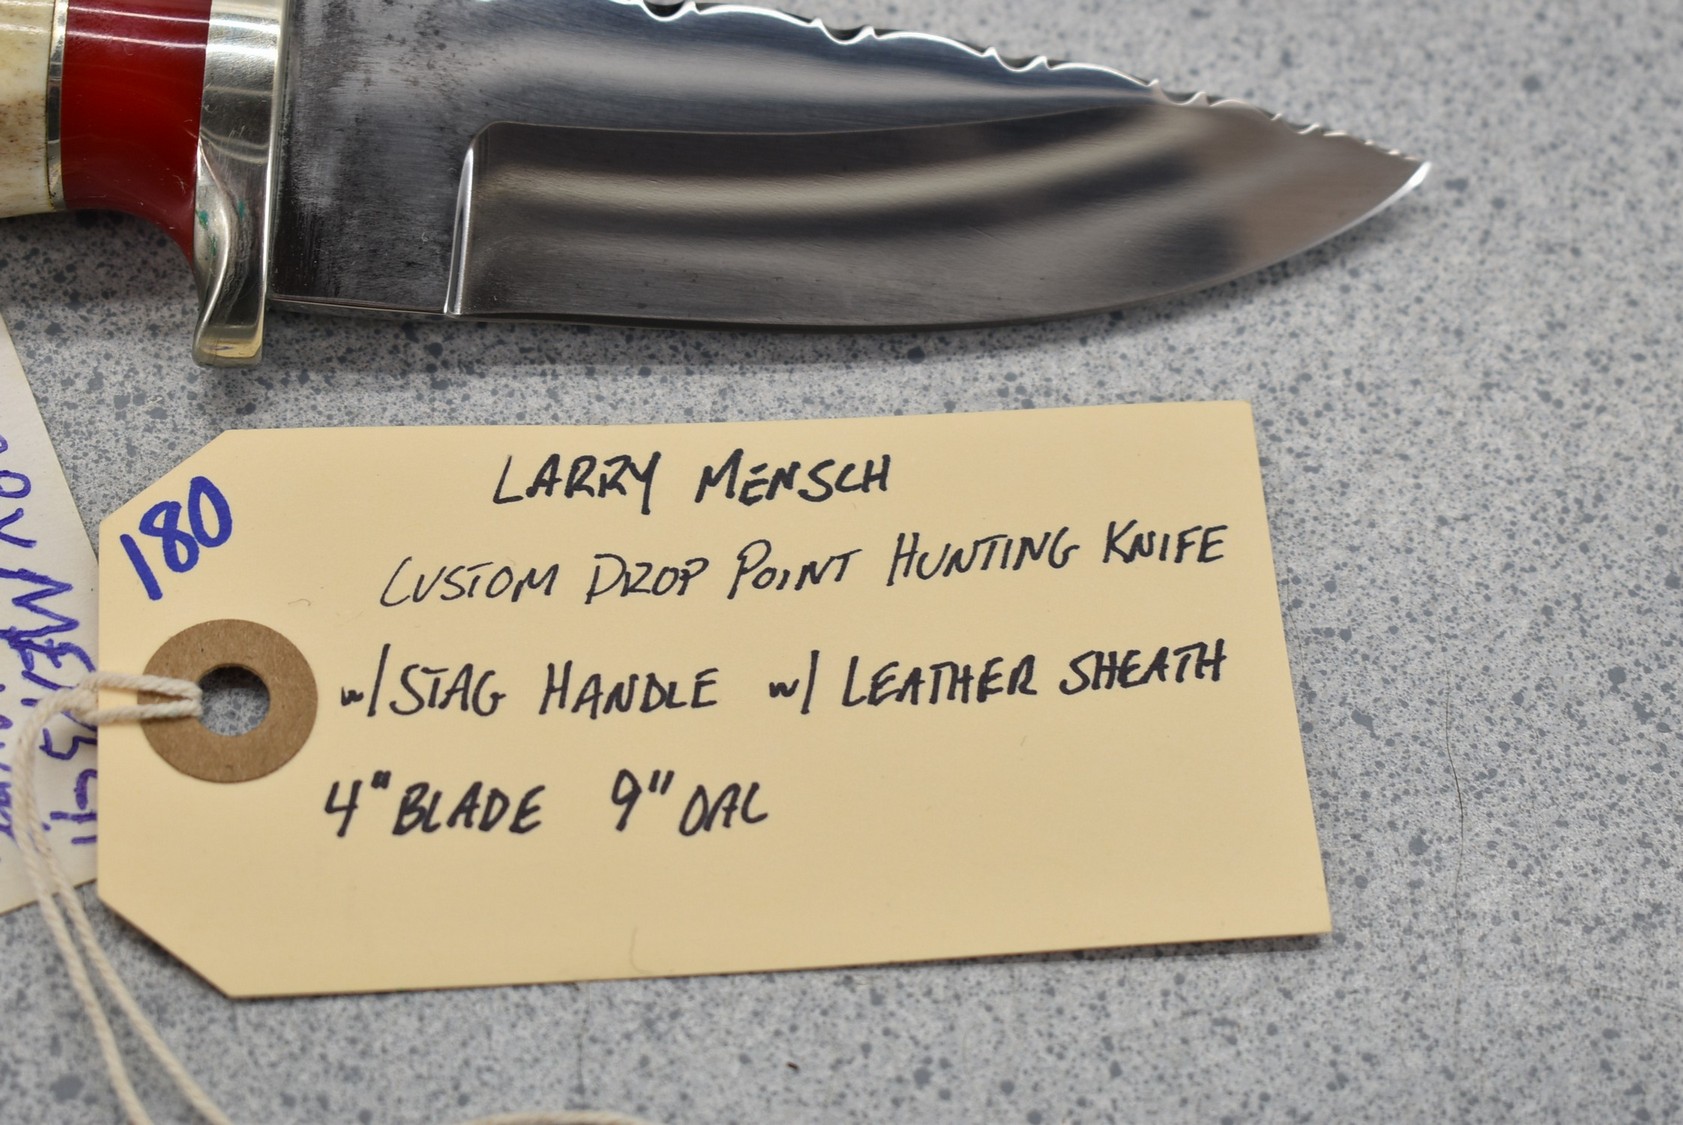 180
LARRY MENSCH
CUSTOM DROP POINT HUNTING KNIFE
w/ STAG HANDLE w/ LEATHER SHEATH
4" BLADE 9" OAL